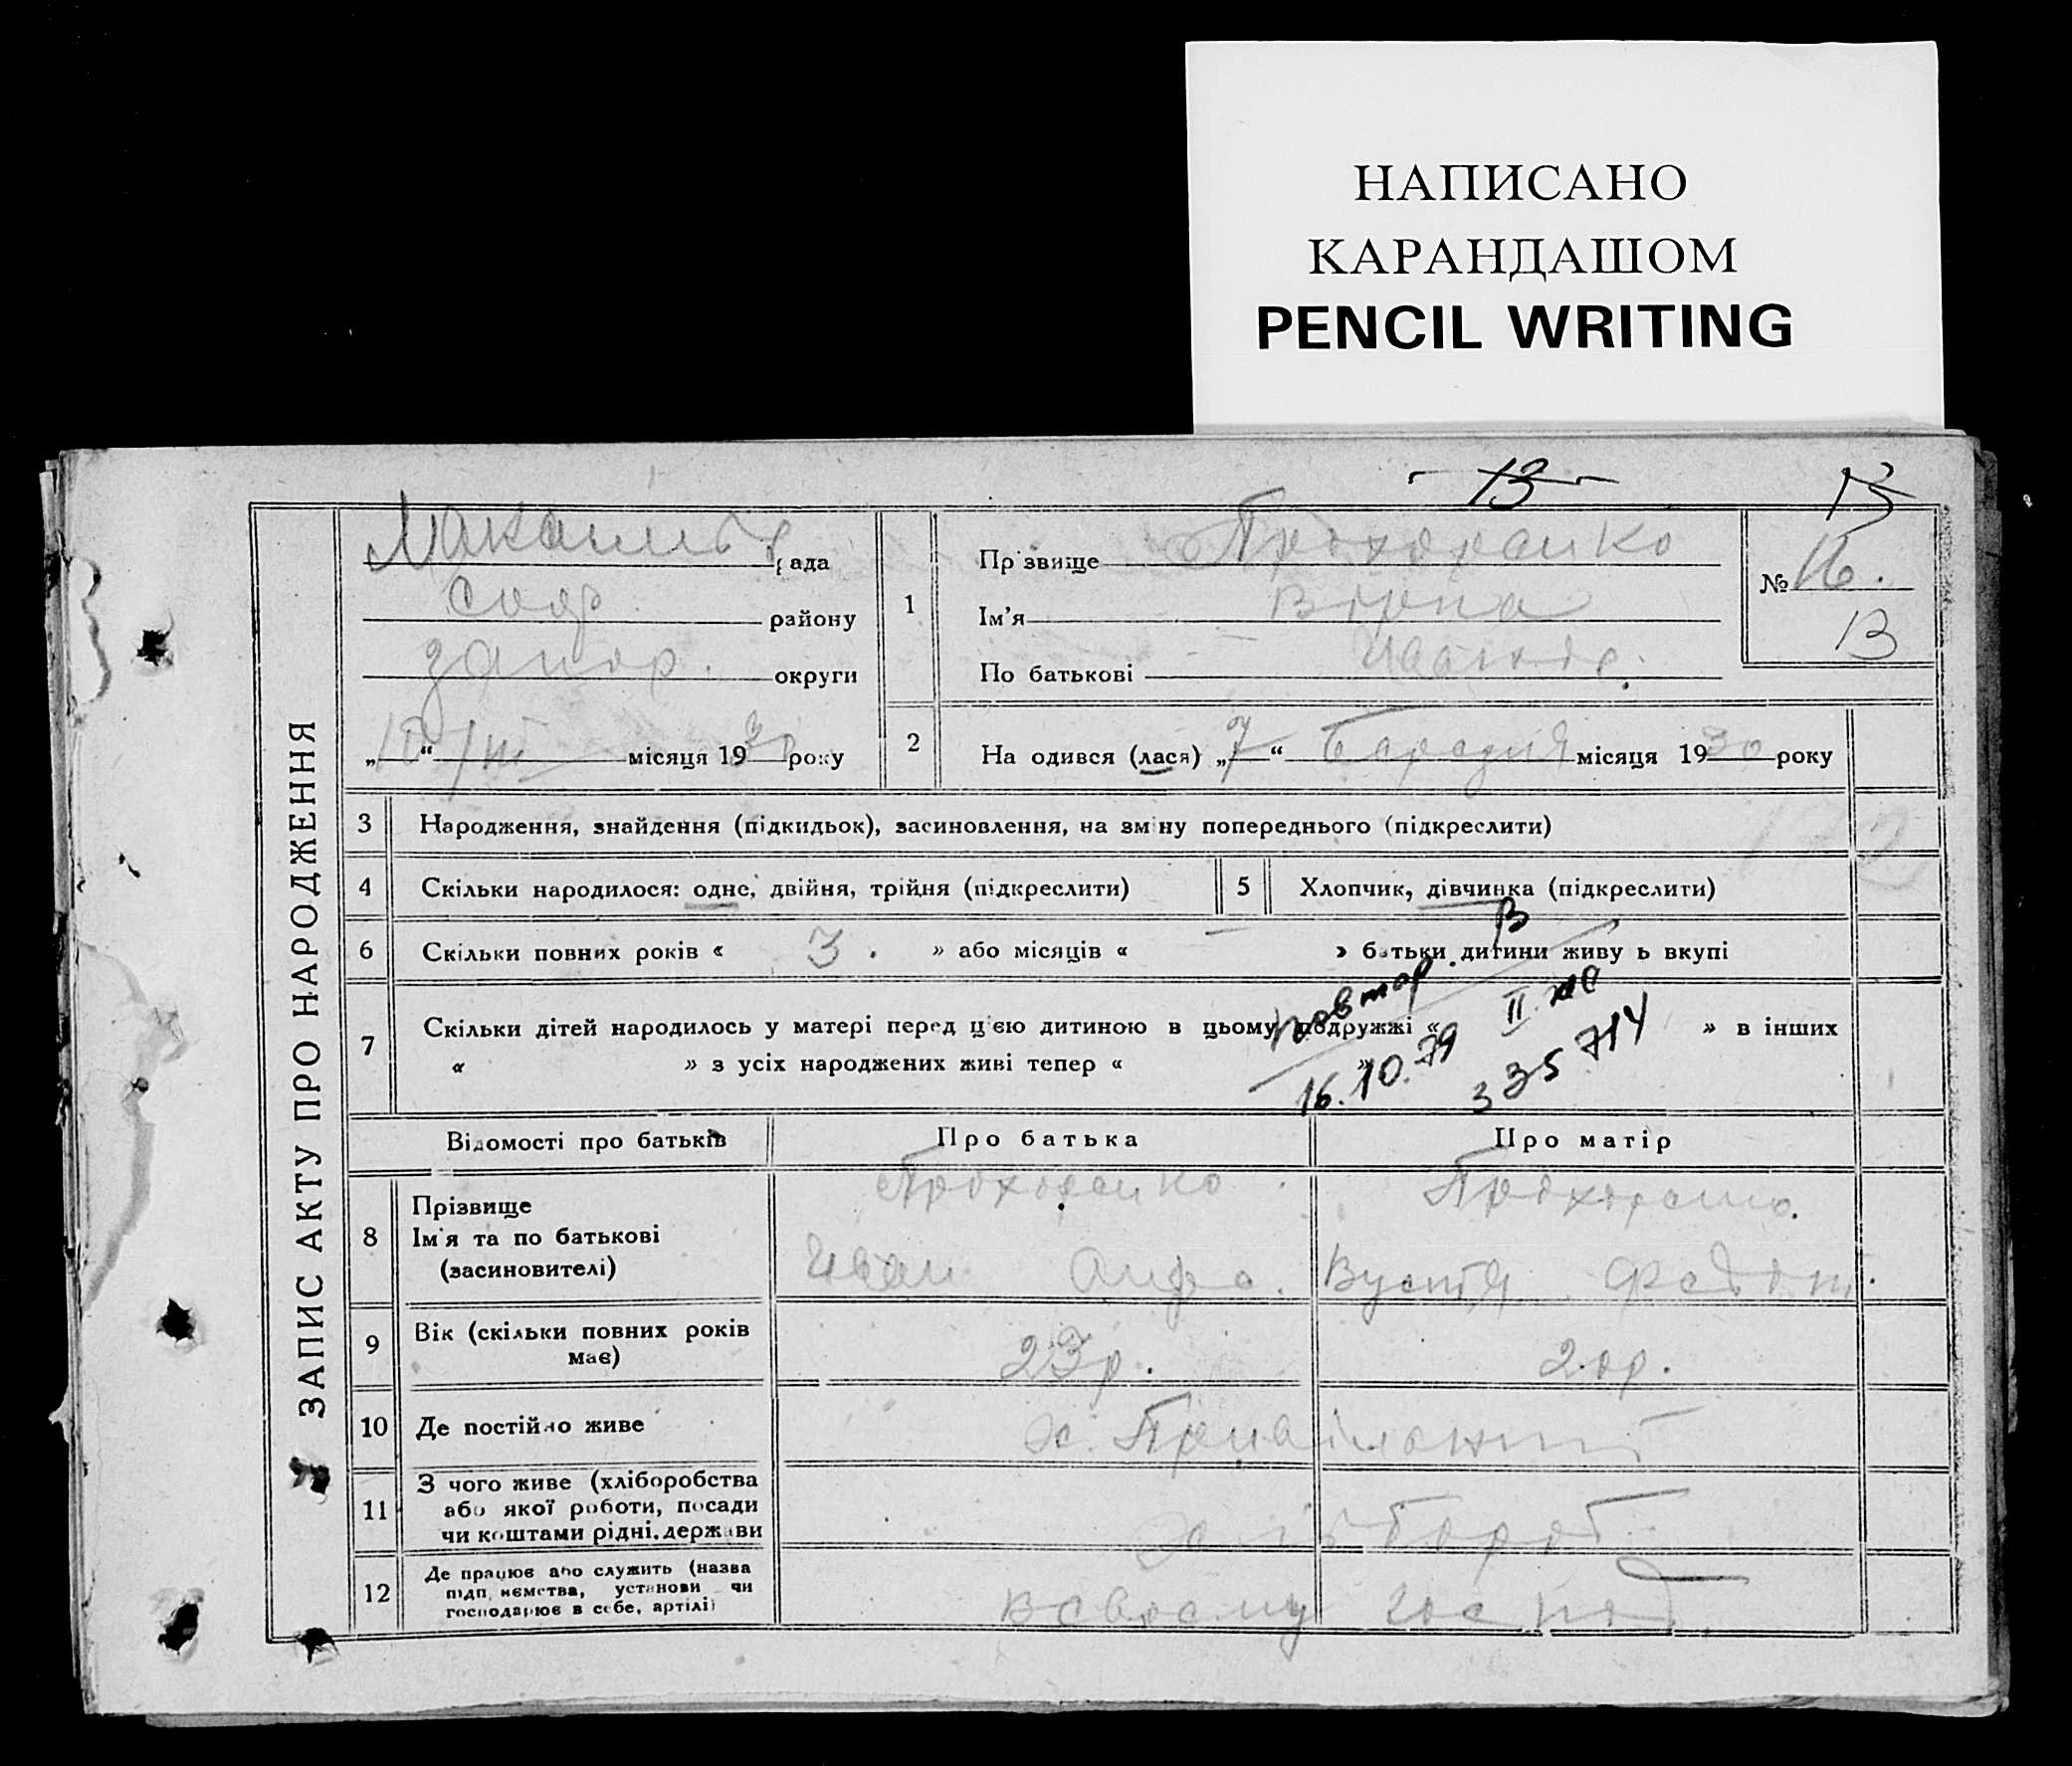 НАПИСАНО
КАРАНДАШОМ
PENCIL WRITING
13
13
ЗАПИС АКТУ ПРО НАРОДЖЕННЯ
рада
Соф. району
Запор. округи
„10“ /III місяця 1930 року
1
Прізвище Прохоренко
Ім’я Вірка
По батькові
№ 16.
13
2 На одився (лася) „7“ Березня місяця 1930 року
3 Народження, знайдення (підкидьок), засиновлення, на зміну попереднього (підкреслити)
4 Скільки народилося: одне, двійня, трійня (підкреслити)
5 Хлопчик, дівчинка (підкреслити)
6 Скільки повних років « 3. » або місяців « » батьки дитини живу ь вкупі
7 Скільки дітей народилось у матері перед цією дитиною в цьому подружжі « » в інших
« » з усіх народжених живі тепер « »
повтор.
16.10.79
335714
Відомості про батьків Про батька Про матір
8 Прізвище
Ім’я та по батькові
(засиновителі)
Прохоренко
Иван
Прохоренко.
Вустя Федот.
9 Вік (скільки повних років
має)
23 р. 20 р.
10 Де постійно живе
х.
11 З чого живе (хліборобства
або якої роботи, посади
чи коштами рідні, держави
хлібороб
12 Де працює або служить (назва
підприємства, установи чи
господарює в себе, артілі)
в своему господ.